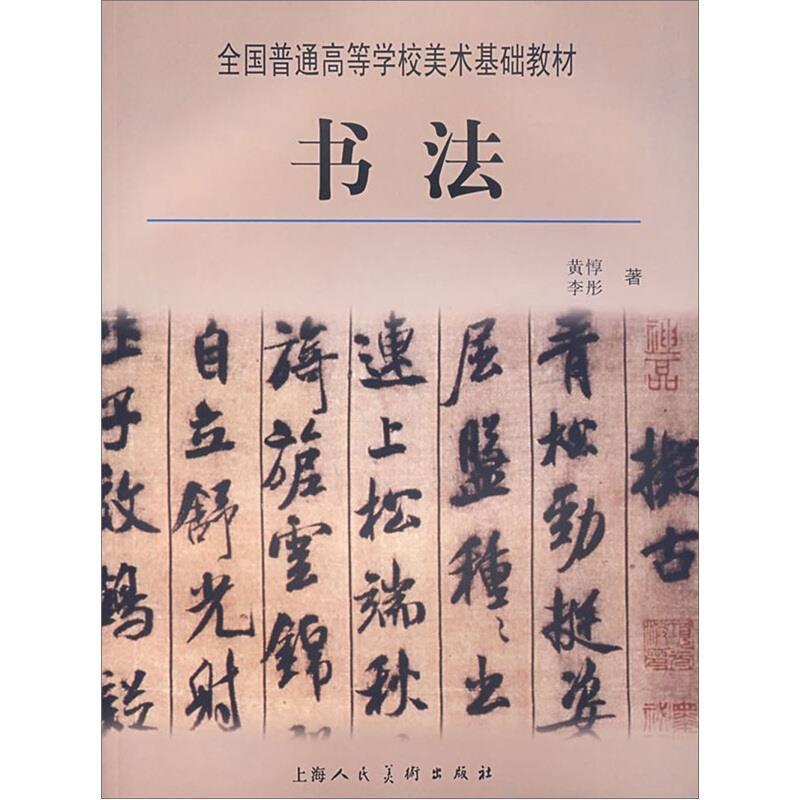 全国普通高等学校美术基础教材
书法
黄惇
李彤
著
擬古
青松勁挺姿
屈盤種〻出
連上松端秋
旖旎雲錦
自立舒光射
子效鶴
上海人民美術出版社